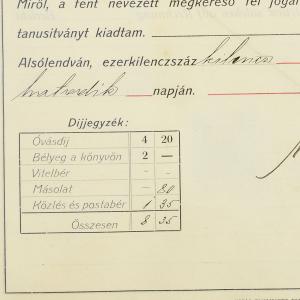 Miről, a fent nevezett megkereső fél jogai
tanusítványt kiadtam.
Alsólendván, ezerkilenczszáz kilencz
hatvadik napján.
Díjjegyzék:
Óvásdíj 4 20
Bélyeg a könyvön 2 —
Vitelbér - -
Másolat — 80
Közlés és postabér 1 35
Összesen 8 35